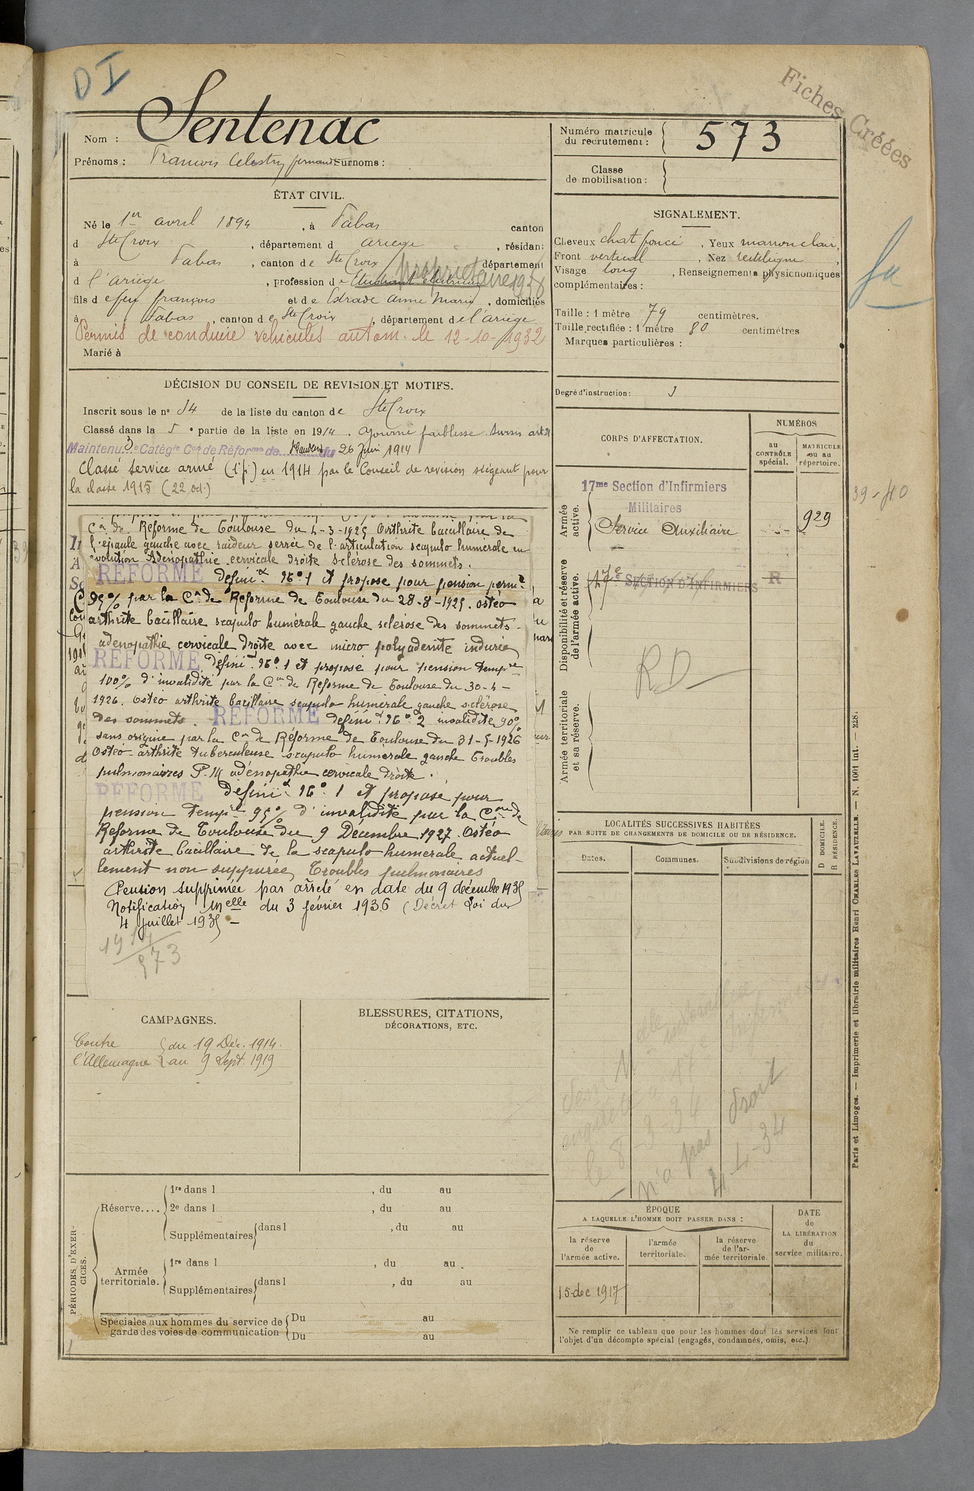 D I
Fiches Créées
Nom : Sentenac
Prénoms : François Célestin fernand Surnoms :
Numéro matricule du recrutement : 573
Classe de mobilisation :
ÉTAT CIVIL.
Né le 1er avril 1894, à Fabas canton
d Ste Croix, département d ariège, résidant
à Fabas, canton de Ste Croix, département
d l'ariège, profession de propriétaire 1938
fils de feu françois et de Estrade anne marie, domiciliés
à Fabas, canton de Ste Croix, département de l'ariège
Permis de conduire véhicules autom. le 12-10-1932
Marié à
SIGNALEMENT.
Cheveux chat foncé, Yeux marron clair,
Front vertical, Nez rectiligne,
Visage long, Renseignements physionomiques
complémentaires :
Taille : 1 mètre 79 centimètres.
Taille rectifiée : 1 mètre 80 centimètres
Marques particulières :
Degré d'instruction : 3
DÉCISION DU CONSEIL DE REVISION ET MOTIFS.
Inscrit sous le n° 14 de la liste du canton de Ste Croix
Classé dans la 5e partie de la liste en 1914. ajourné faiblesse
Maintenu Catégie Con de Réforme de du 26 Juin 1914
Classé service armé (1e p.) en 1914 par le Conseil de revision siégeant pour
la classe 1915 (22 od.)
Con de Réforme de Toulouse du 4-3-1925 Arthrite bacillaire de
l'épaule gauche avec raideur serrée de l'articulation scapulo humérale en
évolution Adenopathie cervicale droite sclérose des sommets.
RÉFORMÉ définif. N° 1 et proposé pour pension perm.te
95% par la Con de Réforme de Toulouse du 28-8-1925. ostéo
arthrite bacillaire scapulo humérale gauche sclérose des sommets -
adenopathie cervicale droite avec micro polyadenite indurée
RÉFORMÉ définif. N° 1 et proposé pour pension tempre
100% d'invalidité par la Con de Réforme de Toulouse du 30-4-
1926. Ostéo arthrite bacillaire scapulo humérale gauche sclérose
des sommets. RÉFORMÉ définif. N° 2 invalidité 90%
sans origine par la Con de Réforme de Toulouse du 31-5-1926
Ostéo arthrite tuberculeuse scapulo humérale gauche Troubles
pulmonaires adénopathie cervicale droite.
RÉFORMÉ définif. N° 1 et proposé pour
pension tempre 95% d'invalidité par la Con de
Réforme de Toulouse du 9 Décembre 1927. Ostéo
arthrite bacillaire de la scapulo humérale actuel-
lement non suppurée, Troubles pulmonaires
Pension supprimée par arrêté en date du 9 décembre 1935
Notification Melle du 3 février 1936 (Décret Loi du
4 Juillet 1935 -
1914
573
CORPS D'AFFECTATION.
NUMÉROS
au CONTRÔLE spécial.
MATRICULE ou au répertoire.
Armée active.
17me Section d'Infirmiers
Militaires
Service Auxiliaire
929
39-40
Disponibilité et réserve de l'armée active.
17e SECTION D'INFIRMIERS R
RD
Armée territoriale et sa réserve.
LOCALITÉS SUCCESSIVES HABITÉES
PAR SUITE DE CHANGEMENTS DE DOMICILE OU DE RÉSIDENCE.
D DOMICILE.
R RÉSIDENCE.
Dates.
Communes.
Subdivisions de région
le 8-3-34
n'a pas droit
4-4-34
CAMPAGNES.
Contre l'Allemagne du 19 Déc. 1914.
au 9 Sept. 1919
BLESSURES, CITATIONS,
DÉCORATIONS, ETC.
PÉRIODES D'EXERCICES.
Réserve....
1re dans l , du au
2e dans l , du au
Supplémentaires dans l , du au
Armée territoriale.
1re dans l , du au
Supplémentaires dans l , du au
Spéciales aux hommes du service de garde des voies de communication
Du au
Du au
ÉPOQUE
A LAQUELLE L'HOMME DOIT PASSER DANS :
la réserve de l'armée active.
l'armée territoriale.
la réserve de l'armée territoriale.
DATE de LA LIBÉRATION du service militaire.
15 dec 1917
Ne remplir ce tableau que pour les hommes dont les services font
l'objet d'un décompte spécial (engagés, condamnés, omis, etc.)
Paris et Limoges. — Imprimerie et librairie militaires Henri CHARLES-LAVAUZELLE. — N. 1001 int. — 228.